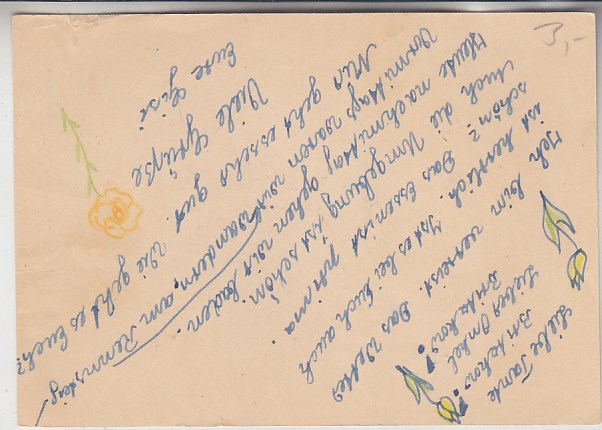 Liebe Tante
Lieber Onkel
Ich bin verreist. Das Wetter
ist herrlich. Ist es bei Euch auch
schön? Das Essen ist prima.
Auch die Umgebung ist schön
Heute nachmittag gehen wir baden.
Vormittags waren wir wandern, am Rennsteig.
Mir geht es sehr gut. Wie geht es Euch?
Viele Grüße
Eure Gisi
3,-